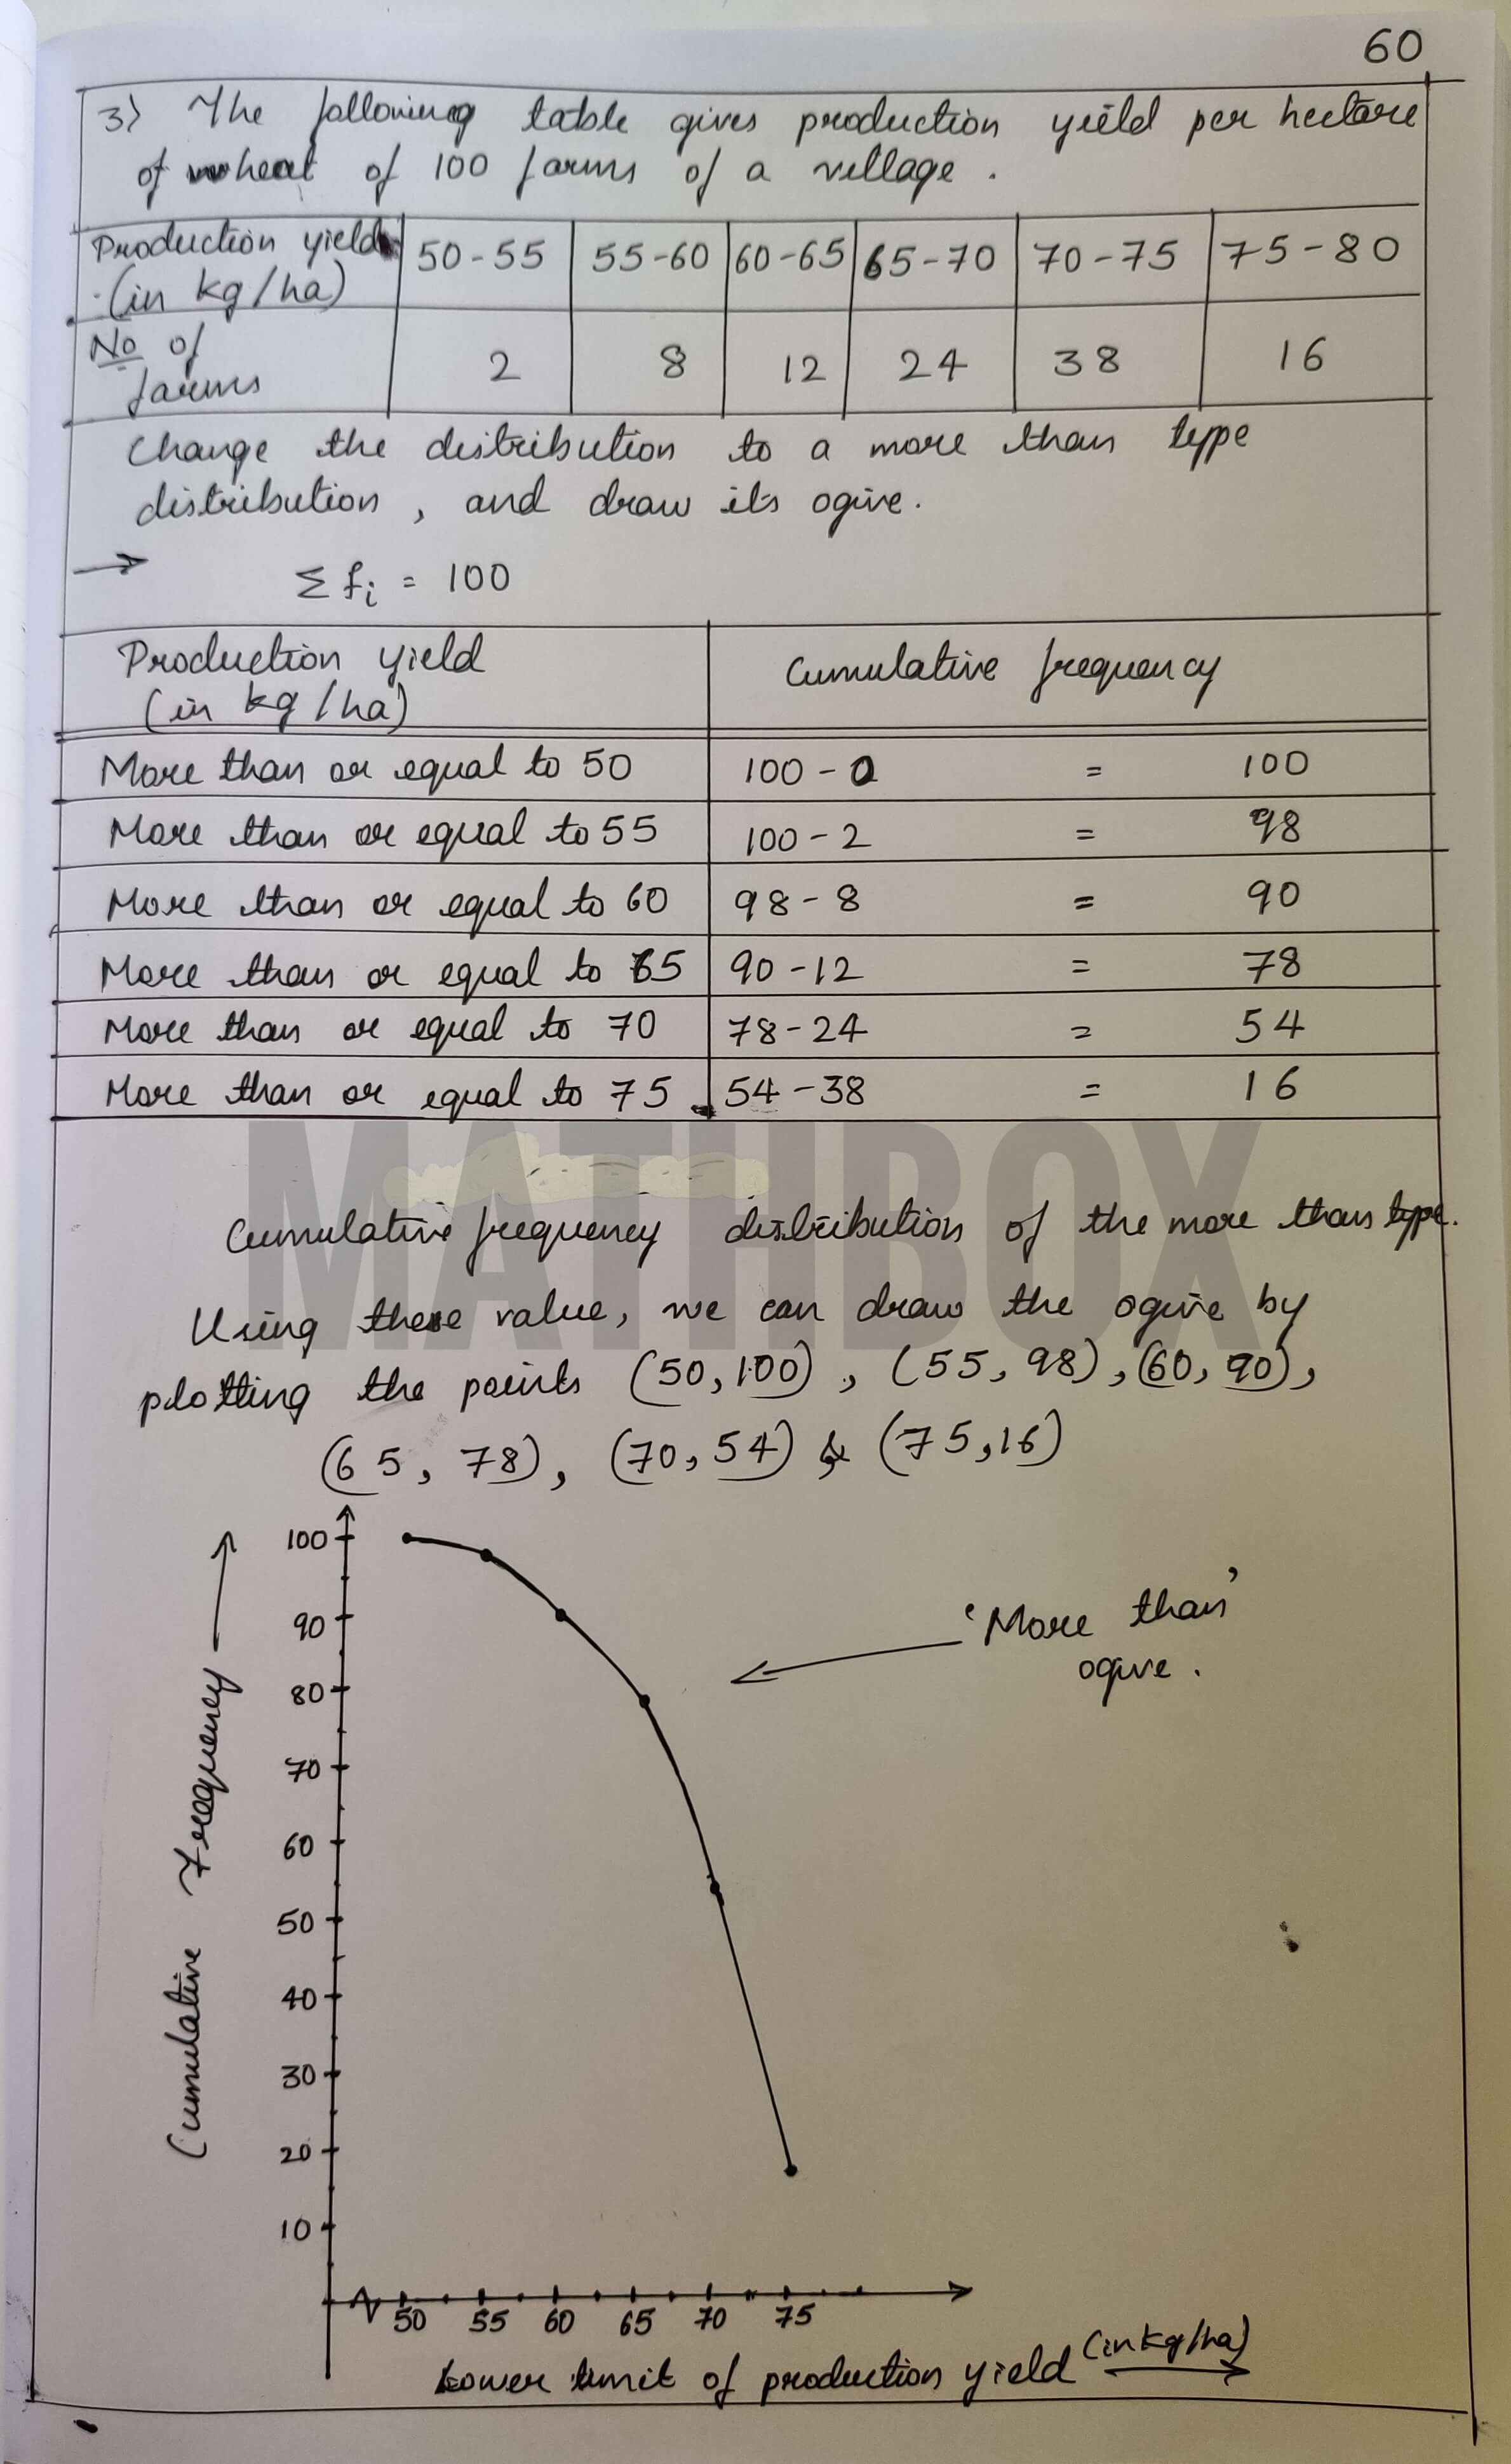 60
3) The following table gives production yield per hectare
of wheat of 100 farms of a village .
Production yield 50-55 55-60 60-65 65-70 70-75 75-80
(in kg/ha)
No of 2 8 12 24 38 16
farms
Change the distribution to a more than type
distribution , and draw its ogive.
→ Σ fi = 100
Production yield Cumulative frequency
(in kg/ha)
More than or equal to 50 100-0 = 100
More than or equal to 55 100-2 = 98
More than or equal to 60 98-8 = 90
More than or equal to 65 90-12 = 78
More than or equal to 70 78-24 = 54
More than or equal to 75 54-38 = 16
MATHBOX
Cumulative frequency distribution of the more than type.
Using these value, we can draw the ogive by
plotting the points (50,100), (55,98), (60,90),
(65,78), (70,54) & (75,16)
Cumulative Frequency →
100
90
80
70
60
50
40
30
20
10
'More than'
ogive .
50 55 60 65 70 75
Lower limit of production yield (in kg/ha) →